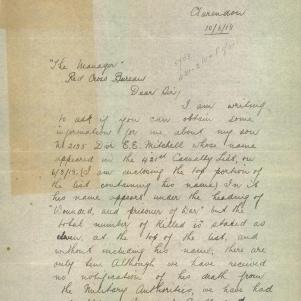 Clarendon
10/6/19
"The Manager"
Red Cross Bureau
Dear Sir,
I am writing
to ask if you can obtain some
information for me, about my son
No 2135 Dvr E.E. Mitchell whose name
appeared in the 421st Casualty List, on
6/8/18. (I am enclosing the top portion of
the list containing his name) In it
his name appears under the heading of
"Wounded, and prisoner of War" but the
total number of killed is stated as
eleven, at the top of the list, and
without including his name, there are
only ten. Although we have received
no notification of his death from
the Military Authorities, we have had